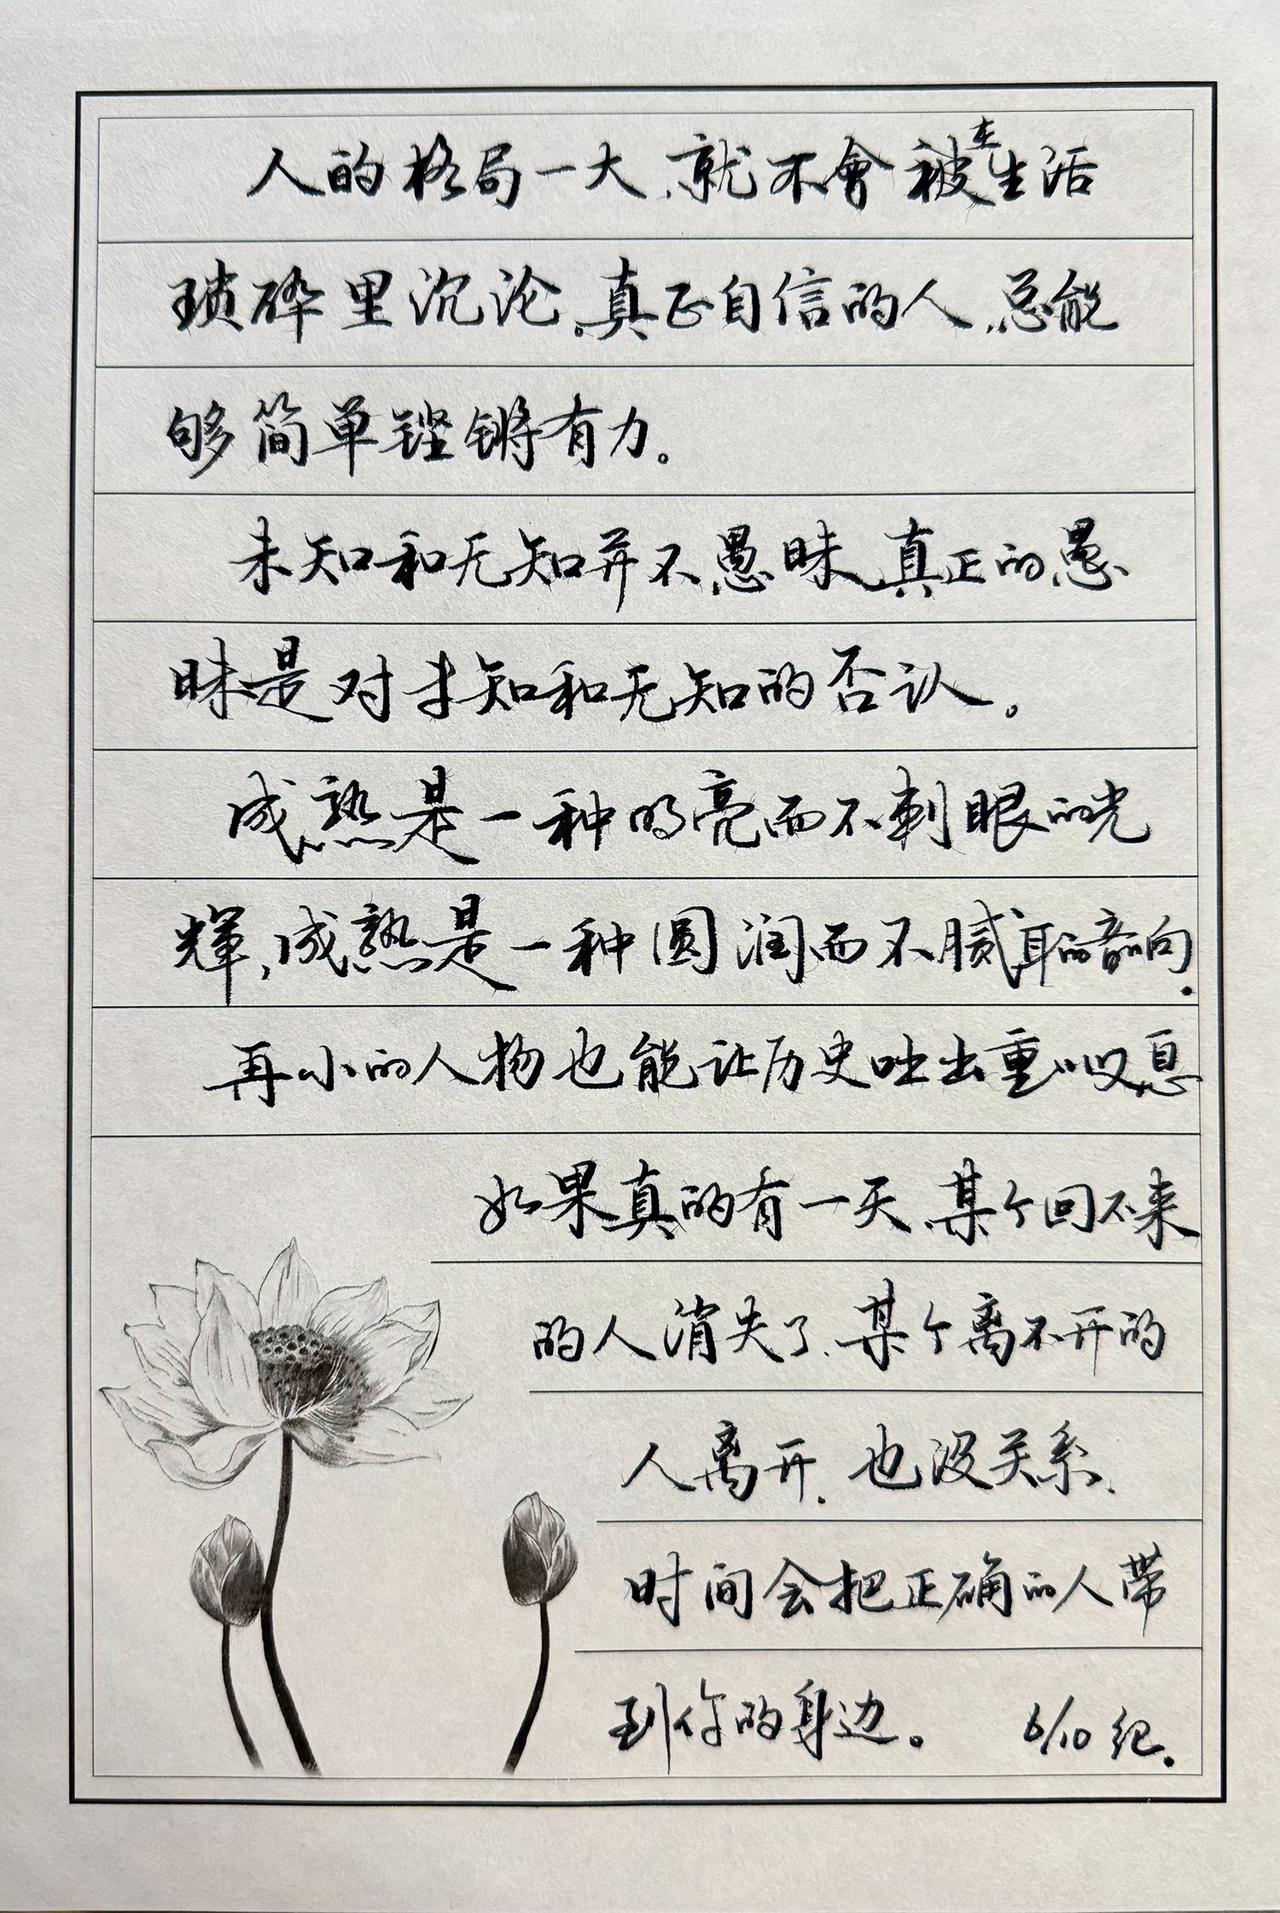 人的格局一大、就不會被在生活
琐碎里沉沦。真正自信的人、总能
够简单铿锵有力。
未知和无知并不愚昧、真正的愚
昧是对未知和无知的否认。
成熟是一种明亮而不刺眼的光
輝,成熟是一种圆润而不腻耳的音响.
再小的人物也能让历史吐出重叹息
如果真的有一天、某个回不来
的人消失了、某个离不开的
人离开、也没关系、
时间会把正确的人带
到你的身边。 6/10 纪.